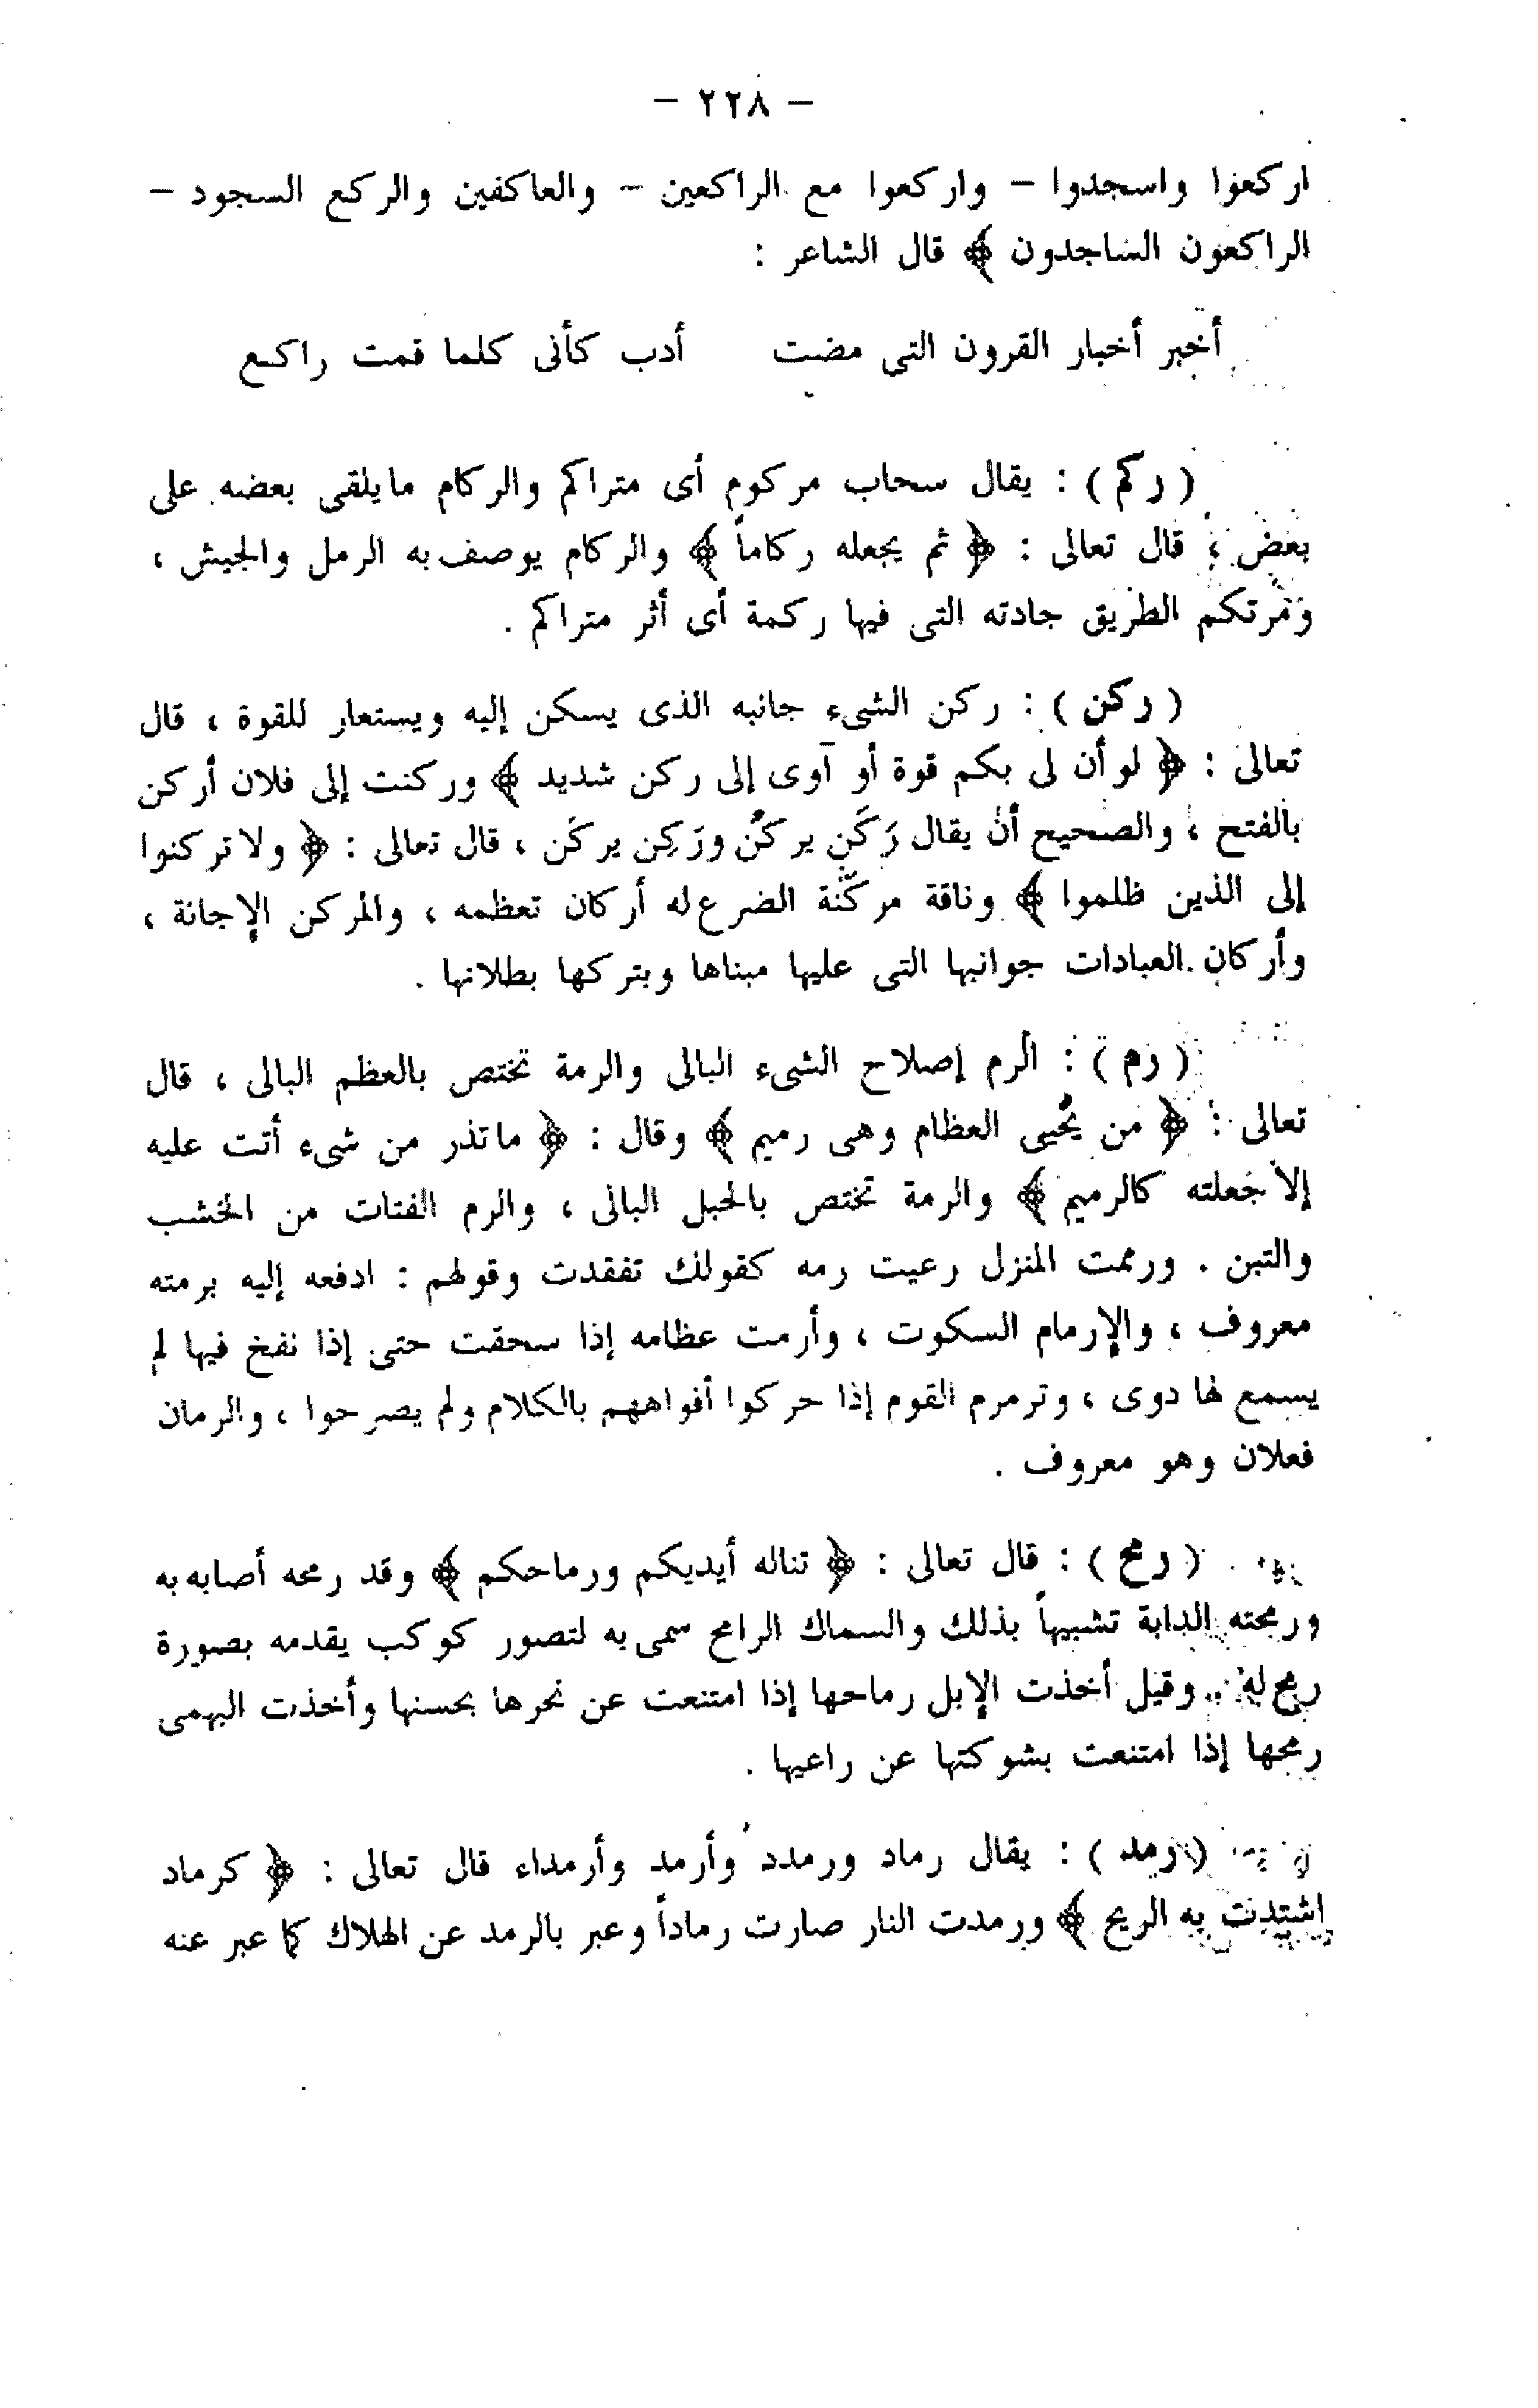 – ٢٢٨ –
اركعوا واسجدوا – واركعوا مع الراكعين – والعاكفين والركع السجود –
الراكعون الساجدون ﴾ قال الشاعر :
أخبر أخبار القرون التى مضت أدب كأنى كلما قمت راكع
( ركم ) : يقال سحاب مركوم أى متراكم والركام مايلقى بعضه على
بعض ، قال تعالى : ﴿ ثم يجعله ركاماً ﴾ والركام يوصف به الرمل والجيش ،
ومرتكم الطريق جادته التى فيها ركمة أى أثر متراكم .
( ركن ) : ركن الشىء جانبه الذى يسكن إليه ويستعار للقوة ، قال
تعالى : ﴿ لو أن لى بكم قوة أو آوى إلى ركن شديد ﴾ وركنت إلى فلان أركن
بالفتح ، والصحيح أن يقال رَكَن يركُن ورَكِن يركَن ، قال تعالى : ﴿ ولا تركنوا
إلى الذين ظلموا ﴾ وناقة مركّنة الضرع له أركان تعظمه ، والمركن الإجانة ،
وأركان العبادات جوانبها التى عليها مبناها وبتركها بطلانها .
( رم ) : الرم إصلاح الشىء البالى والرمة تختص بالعظم البالى ، قال
تعالى : ﴿ من يُحيى العظام وهى رميم ﴾ وقال : ﴿ ماتذر من شىء أتت عليه
إلا جعلته كالرميم ﴾ والرمة تختص بالحبل البالى ، والرم الفتات من الخشب
والتبن . ورممت المنزل رعيت رمه كقولك تفقدت وقولهم : ادفعه إليه برمته
معروف ، والإرمام السكوت ، وأرمت عظامه إذا سحقت حتى إذا نفخ فيها لم
يسمع لها دوى ، وترمرم القوم إذا حركوا أفواههم بالكلام ولم يصرحوا ، والرمان
فعلان وهو معروف .
( رمح ) : قال تعالى : ﴿ تناله أيديكم ورماحكم ﴾ وقد رمحه أصابه به
ورمحته الدابة تشبيهاً بذلك والسماك الرامح سمى به لتصور كوكب يقدمه بصورة
رمح له . وقيل أخذت الإبل رماحها إذا امتنعت عن نحرها بحسنها وأخذت البهمى
رمحها إذا امتنعت بشوكتها عن راعيها .
( رمد ) : يقال رماد ورمدد وأرمد وأرمداء قال تعالى : ﴿ كرماد
اشتدت به الريح ﴾ ورمدت النار صارت رماداً وعبر بالرمد عن الهلاك كما عبر عنه